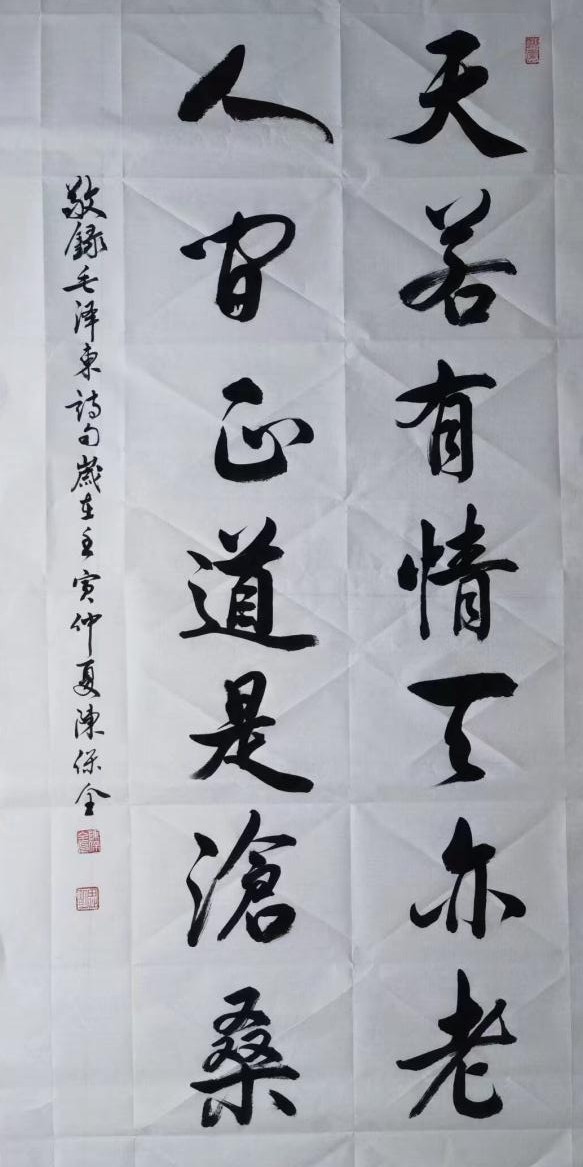 天若有情天亦老
人间正道是滄桑
敬録毛泽東詩句歲在壬寅仲夏陳保全